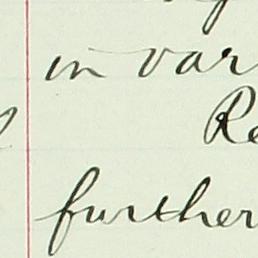 in var
Re
further